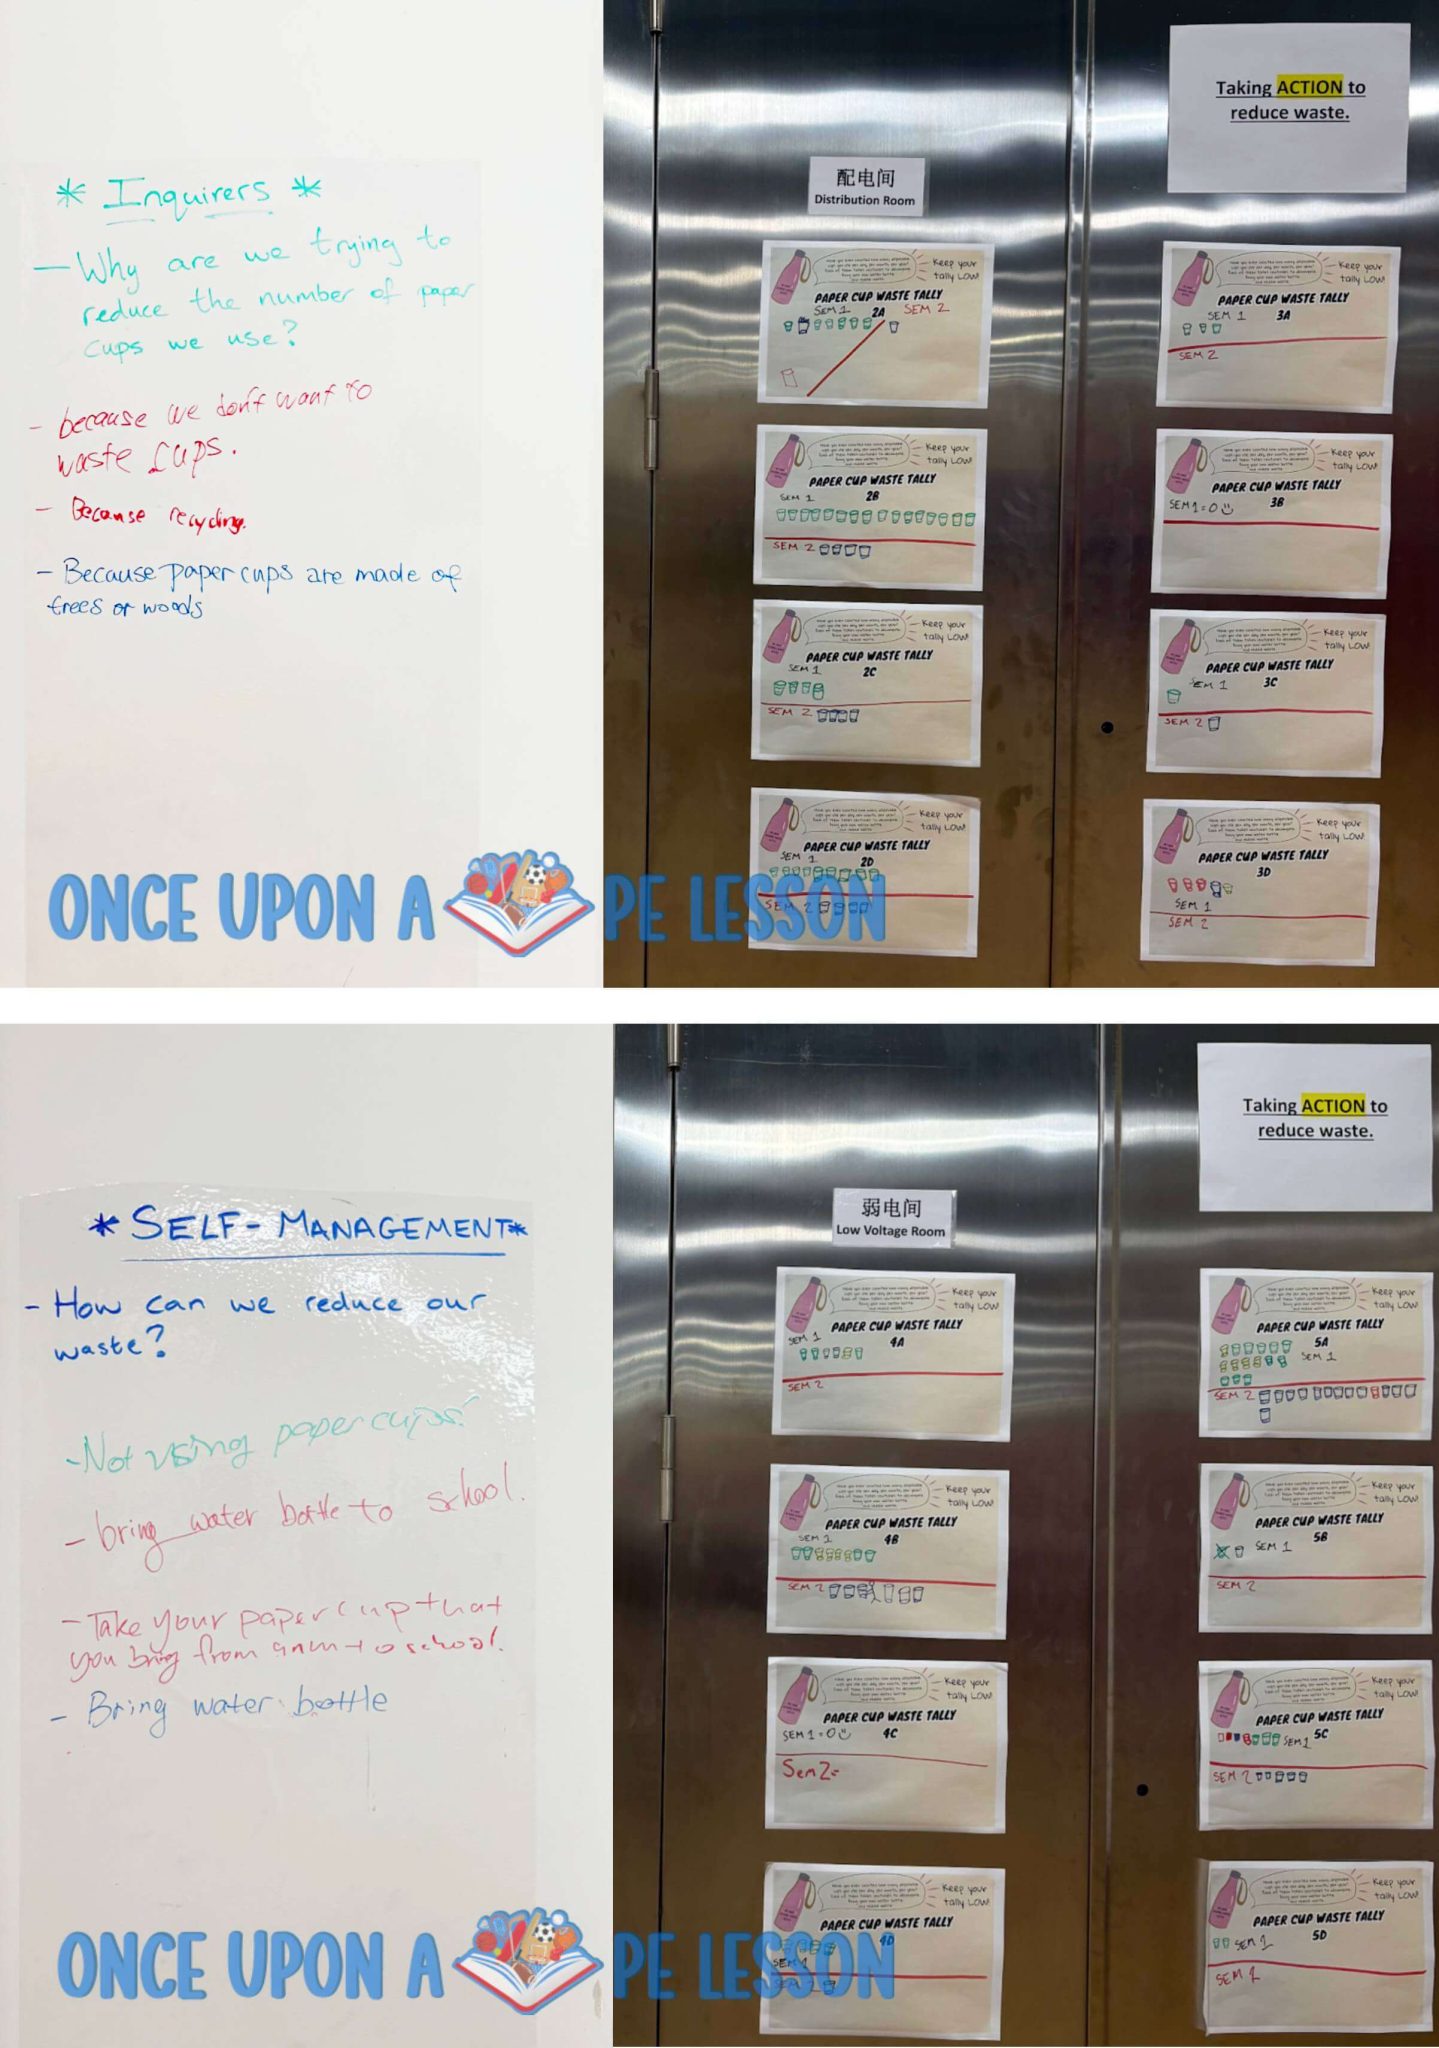 * Inquirers *
- Why are we trying to
reduce the number of paper
cups we use?
- because we don't want to
waste cups.
- Because recycling.
- Because paper cups are made of
trees or woods
Taking ACTION to
reduce waste.
配电间
Distribution Room
Keep your
tally LOW!
PAPER CUP WASTE TALLY
SEM 1 2A SEM 2
Keep your
tally LOW!
PAPER CUP WASTE TALLY
SEM 1 2B
SEM 2
Keep your
tally LOW!
PAPER CUP WASTE TALLY
SEM 1 2C
SEM 2
Keep your
tally LOW!
PAPER CUP WASTE TALLY
SEM 1 2D
SEM 2
Keep your
tally LOW!
PAPER CUP WASTE TALLY
SEM 1 3A
SEM 2
Keep your
tally LOW!
PAPER CUP WASTE TALLY
SEM 1 = 0 3B
Keep your
tally LOW!
PAPER CUP WASTE TALLY
SEM 1 3C
SEM 2
Keep your
tally LOW!
PAPER CUP WASTE TALLY
3D
SEM 1
SEM 2
ONCE UPON A PE LESSON
* SELF-MANAGEMENT *
- How can we reduce our
waste?
- Not using paper cups!
- bring water bottle to school.
- Take your paper cup that
you bring from to school.
- Bring water bottle
Taking ACTION to
reduce waste.
弱电间
Low Voltage Room
Keep your
tally LOW!
PAPER CUP WASTE TALLY
SEM 1 4A
SEM 2
Keep your
tally LOW!
PAPER CUP WASTE TALLY
SEM 1 4B
SEM 2
Keep your
tally LOW!
PAPER CUP WASTE TALLY
SEM 1 = 0 4C
Sem 2=
Keep your
tally LOW!
PAPER CUP WASTE TALLY
4D
SEM 1
SEM 2
Keep your
tally LOW!
PAPER CUP WASTE TALLY
5A
SEM 1
SEM 2
Keep your
tally LOW!
PAPER CUP WASTE TALLY
5B
SEM 1
SEM 2
Keep your
tally LOW!
PAPER CUP WASTE TALLY
SEM 1 5C
SEM 2
Keep your
tally LOW!
PAPER CUP WASTE TALLY
SEM 1 5D
SEM 2
ONCE UPON A PE LESSON